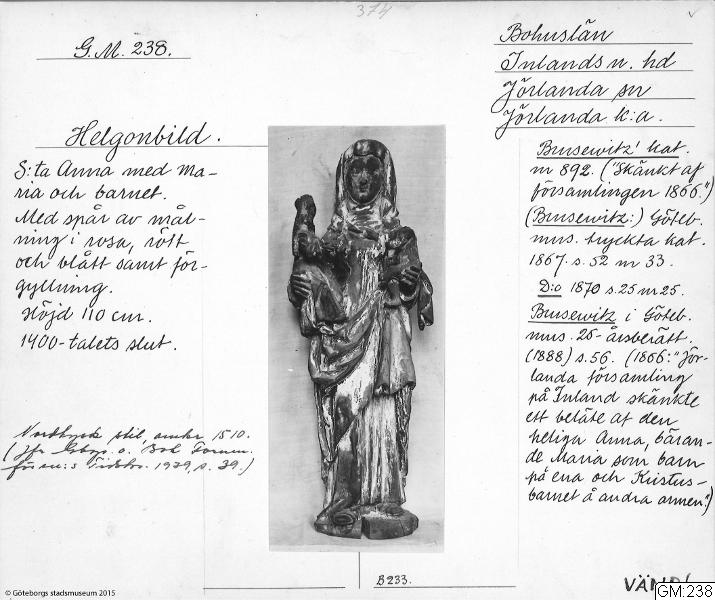 374
G.M. 238.
Bohuslän
Inlands n. hd
Jörlanda sn
Jörlanda k:a.
Helgonbild.
S:ta Anna med Ma-
ria och barnet.
Med spår av mål-
ning i rosa, rött
och blått samt för-
gyllning.
Höjd 110 cm.
1400-talets slut.
Nordtysk stil, omkr. 1510.
(Jfr Gbgs o. Boh. Fornm.
fören:s tidskr. 1939, s. 39.)
Brusewitz' kat.
nr 892. ("Skänkt af
församlingen 1866.")
(Brusewitz:) Göteb.
mus. tryckta kat.
1867. s. 52 nr 33.
D:o 1870 s. 25 nr 25.
Brusewitz i Göteb.
mus. 25-årsberätt.
(1888) s. 56. (1866: "Jör-
landa församling
på Inland skänkte
ett beläte af den
heliga Anna, bäran-
de Maria som barn
på ena och Kristus-
barnet å andra armen.")
B 233.
VÄND!
GM:238
© Göteborgs stadsmuseum 2015